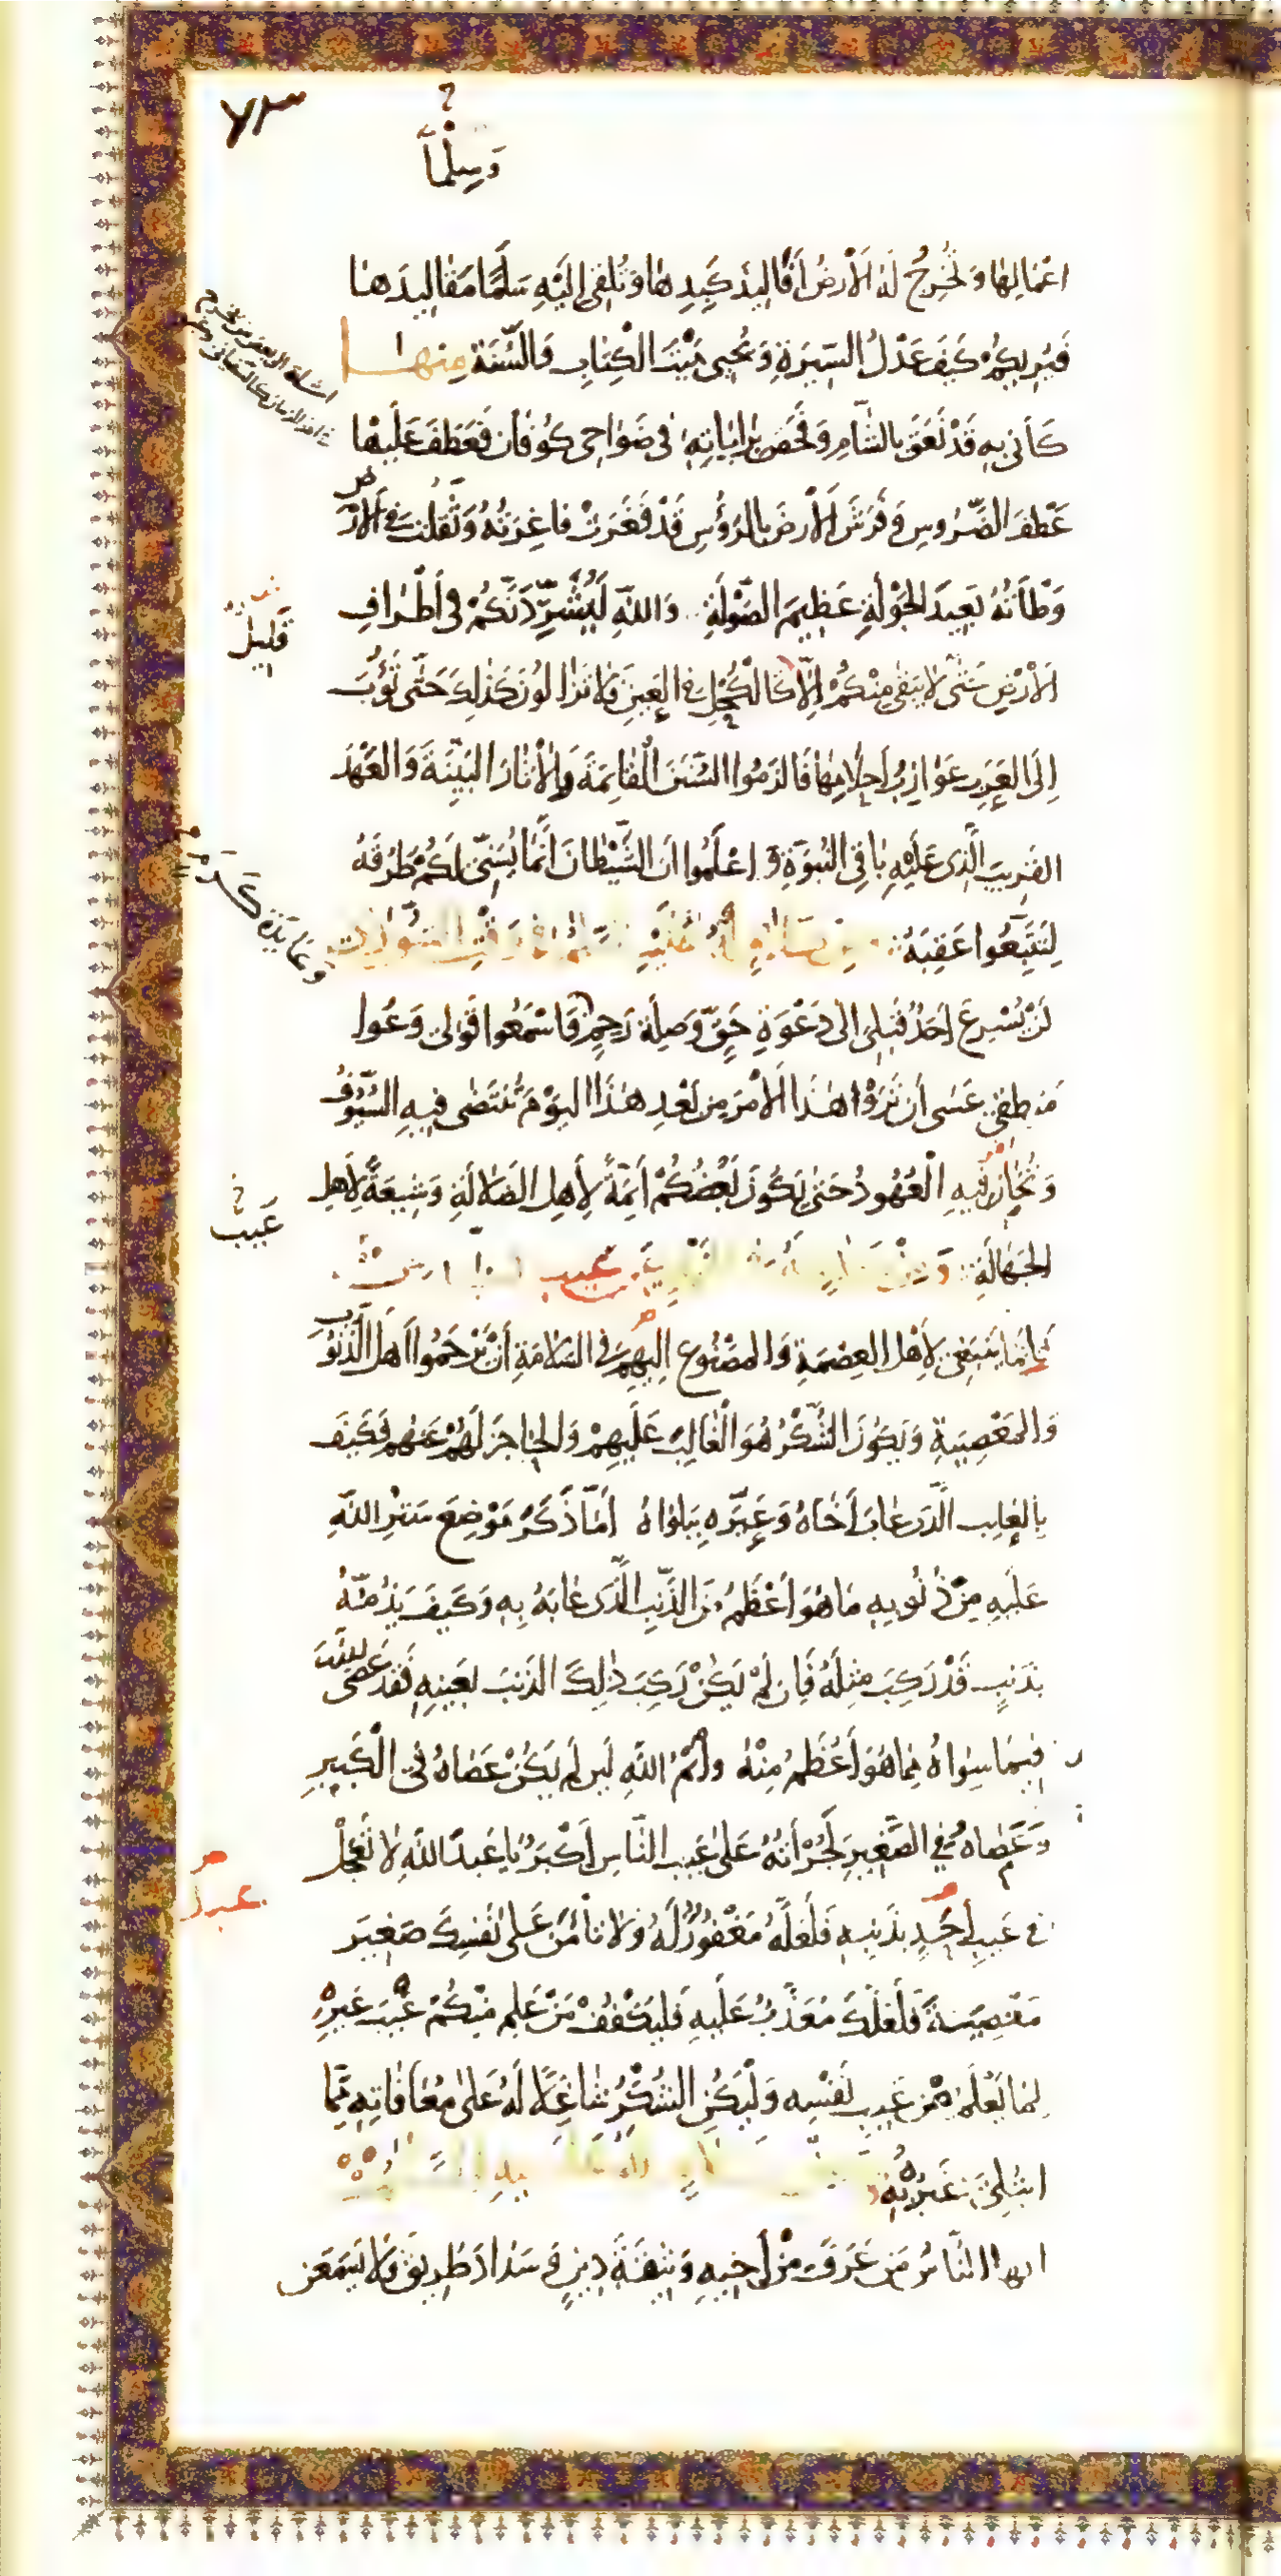 ٧٣
وَسِلْماً
اعْمَالِهَا وَتُخْرِجُ لَهُ الْأَرْضُ أَفَالِيذَ كَبِدِهَا وَتُلْقِي إِلَيْهِ سِلْمًا مَقَالِيدَهَا
فَيُرِيكُمْ كَيْفَ عَدْلُ السِّيرَةِ وَيُحْيِي مَيِّتَ الْكِتَابِ وَالسُّنَّةِ مِنْهَا
كَأَنِّي بِهِ قَدْ نَعَقَ بِالشَّامِ وَفَحَصَ بِرَايَاتِهِ فِي ضَوَاحِي كُوفَانَ فَعَطَفَ عَلَيْهَا
عَطْفَ الضَّرُوسِ وَفَرَشَ الْأَرْضَ بِالرُّؤُسِ قَدْ فَغَرَتْ فَاغِرَتُهُ وَثَقُلَتْ فِي الْأَرْضِ
وَطْأَتُهُ بَعِيدَ الْجَوْلَةِ عَظِيمَ الصَّوْلَةِ وَاللَّهِ لَيُشَرِّدَنَّكُمْ فِي أَطْرَافِ
قَلِيلٌ
الْأَرْضِ حَتَّى لَا يَبْقَى مِنْكُمْ إِلَّا كَالْكُحْلِ فِي الْعَيْنِ فَلَا تَزَالُونَ كَذَلِكَ حَتَّى تَؤُوبَ
إِلَى الْعَرَبِ عَوَازِبُ أَحْلَامِهَا فَالْزَمُوا السُّنَنَ الْقَائِمَةَ وَالْآثَارَ الْبَيِّنَةَ وَالْعَهْدَ
الْقَرِيبَ الَّذِي عَلَيْهِ بَاقِي النُّبُوَّةِ وَاعْلَمُوا أَنَّ الشَّيْطَانَ إِنَّمَا يُسَنِّي لَكُمْ طُرُقَهُ
لِتَتَّبِعُوا عَقِبَهُ
وَعَائِدَةِ كَرَمٍ
لَنْ يُسْرِعَ أَحَدٌ قَبْلِي إِلَى دَعْوَةِ حَقٍّ وَصِلَةِ رَحِمٍ فَاسْمَعُوا قَوْلِي وَعُوا
مَنْطِقِي عَسَى أَنْ تَرَوْا هَذَا الْأَمْرَ مِنْ بَعْدِ هَذَا الْيَوْمِ تُنْتَضَى فِيهِ السُّيُوفُ
وَتُخَانُ فِيهِ الْعُهُودُ حَتَّى يَكُونَ بَعْضُكُمْ أَئِمَّةً لِأَهْلِ الضَّلَالَةِ وَشِيعَةً لِأَهْلِ
عَيْبِ
الْجَهَالَةِ
فَإِنَّمَا يَنْبَغِي لِأَهْلِ الْعِصْمَةِ وَالْمَصْنُوعِ إِلَيْهِمْ فِي السَّلَامَةِ أَنْ يَرْحَمُوا أَهْلَ الذُّنُوبِ
وَالْمَعْصِيَةِ وَيَكُونَ الشُّكْرُ هُوَ الْغَالِبَ عَلَيْهِمْ وَالْحَاجِزَ لَهُمْ عَنْهُمْ فَكَيْفَ
بِالْعَائِبِ الَّذِي عَابَ أَخَاهُ وَعَيَّرَهُ بِبَلْوَاهُ أَمَا ذَكَرَ مَوْضِعَ سَتْرِ اللَّهِ
عَلَيْهِ مِنْ ذُنُوبِهِ مَا هُوَ أَعْظَمُ مِنَ الذَّنْبِ الَّذِي عَابَهُ بِهِ وَكَيْفَ يَذُمُّهُ
بِذَنْبٍ قَدْ رَكِبَ مِثْلَهُ فَإِنْ لَمْ يَكُنْ رَكِبَ ذَلِكَ الذَّنْبَ بِعَيْنِهِ فَقَدْ عَصَى اللَّهَ
فِيمَا سِوَاهُ مِمَّا هُوَ أَعْظَمُ مِنْهُ وَأَيْمُ اللَّهِ لَئِنْ لَمْ يَكُنْ عَصَاهُ فِي الْكَبِيرِ
وَعَصَاهُ فِي الصَّغِيرِ لَجُرْأَتُهُ عَلَى عَيْبِ النَّاسِ أَكْبَرُ يَا عَبْدَ اللَّهِ لَا تَعْجَلْ
عبد
فِي عَيْبِ أَحَدٍ بِذَنْبِهِ فَلَعَلَّهُ مَغْفُورٌ لَهُ وَلَا تَأْمَنْ عَلَى نَفْسِكَ صَغِيرَ
مَعْصِيَةٍ فَلَعَلَّكَ مُعَذَّبٌ عَلَيْهِ فَلْيَكْفُفْ مَنْ عَلِمَ مِنْكُمْ عَيْبَ غَيْرِهِ
لِمَا يَعْلَمُ مِنْ عَيْبِ نَفْسِهِ وَلْيَكُنِ الشُّكْرُ شَاغِلًا لَهُ عَلَى مُعَافَاتِهِ مِمَّا
ابْتُلِيَ غَيْرُهُ بِهِ
أَيُّهَا النَّاسُ مَنْ عَرَفَ مِنْ أَخِيهِ وَثِيقَةَ دِينٍ وَسَدَادَ طَرِيقٍ فَلَا يَسْمَعَنَّ